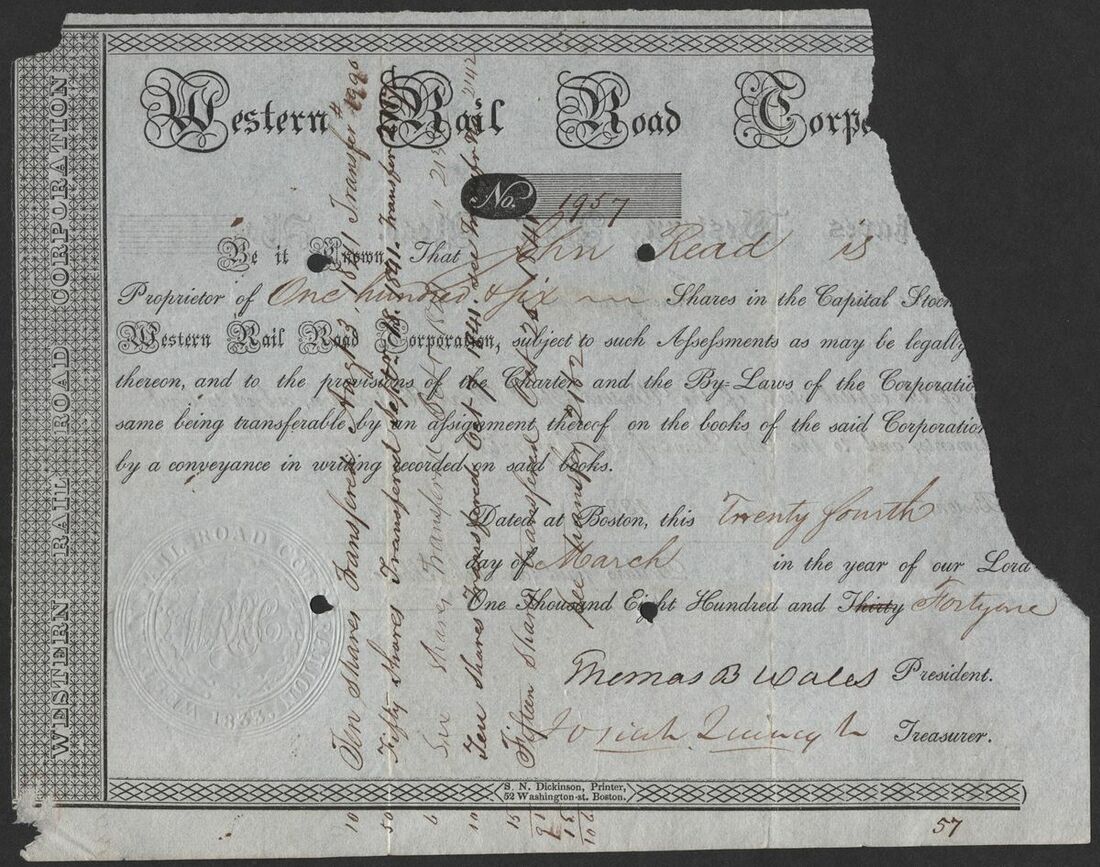 WESTERN RAIL ROAD CORPORATION
Western Rail Road Corpo
No. 1957
Be it Known That John Read is
Proprietor of One hundred & six Shares in the Capital Stoc
Western Rail Road Corporation, subject to such Assessments as may be legally
thereon, and to the provisions of the Charter and the By-Laws of the Corporatio
same being transferable by an assignment thereof on the books of the said Corporation
by a conveyance in writing recorded on said books.
Dated at Boston, this Twenty fourth
day of March in the year of our Lord
One Thousand Eight Hundred and Thirty Forty one
Thomas B Wales President.
Josiah Quincy Jr Treasurer.
S. N. Dickinson, Printer,
52 Washington-st. Boston.
57
1833.
Ten Shares Transfered Aug 13, 1841 Transfer
Fifty Shares Transfered Sept 1841. Transfer
Six Shares Transfered Oct
Ten Shares Transfered Oct 1841. see 2142
Fifteen Shares Transfered Oct 26 1841
see transfer 2182
10
50
6
10
15
91
15
106